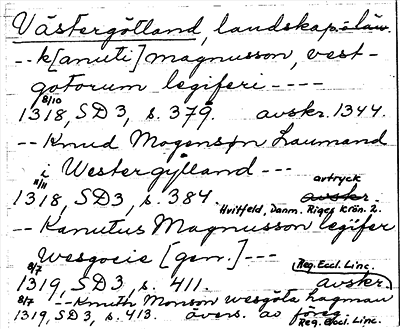 Västergötland, landskap
-- k[anuti] magnusson, vest-
gotorum legiferi ----
8/10
1318, SD3, s. 379. avskr. 1344.
-- Knud Mogensøn Laumand
i Westergylland ---
11/11 avtryck
1318, SD3, s. 384. avskr.
Hvitfeld, Danm. Riges Krön. 2.
-- Kanutus Magnusson legifer
Wesgocie [gen.] ---
8/7 Reg. Eccl. Linc.
1319, SD3, s. 411. avskr.
8/7 -- Knuth Monson wesgöta lagman
1319, SD3, s. 413. övers. av föreg.
Reg. Eccl. Linc.